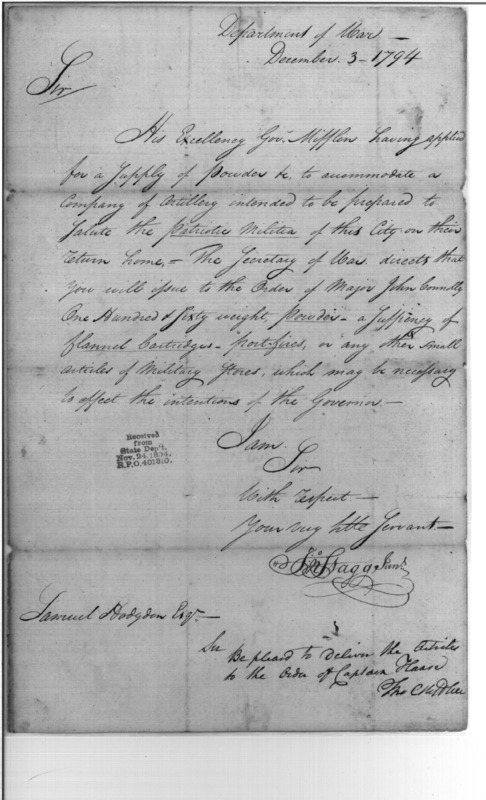 Department of War —
December 3 - 1794
Sir
His Excellency Gov.r Mifflin having applied
for a Supply of Powder &c, to accommodate a
Company of Artillery intended to be prepared to
Salute the Patriotic Militia of this City on their
return home, — The Secretary of War directs that
you will issue to the Order of Major John Connelly
One Hundred & Sixty weight Powder - a Suffiency of
flannel Cartridges - port-fires, or any other small
articles of Military Stores, which may be necessary
to effect the intentions of the Governor —
I am
Sir
With respect —
Your very hble Servant —
Jno Stagg Junr
Received
from
State Dep't.
Nov. 24, 1894.
R.P.O. 401310.
Samuel Hodgdon Esqr —
Sir Be pleasd to Deliver the Articles
to the Order of Captain